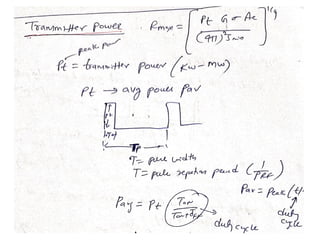 Transmitter Power Rmax = [ Pt G σ Ae / (4π)² Smin ]^1/4
peak power
Pt = transmitter power (kW - MW)
Pt → avg power Pav
Tp
T = pulse width
T = pulse repetition period (1/PRF)
Pav = Pt ( Ton / Ton+Toff ) Pav = Peak (
duty cycle duty cycle